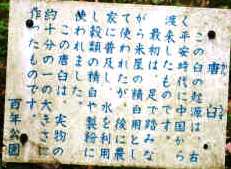 唐臼
この臼の起源は、古
く平安時代に中国から
渡来したものです。
最初は、足で踏みな
がら米屋の精白用とし
て使われたが、後に農
家に普及し、水を利用
し穀類の精白や製粉に
使われました。
この唐臼は、実物の
約十分の一の大きさに
作ったものです。
百年公園